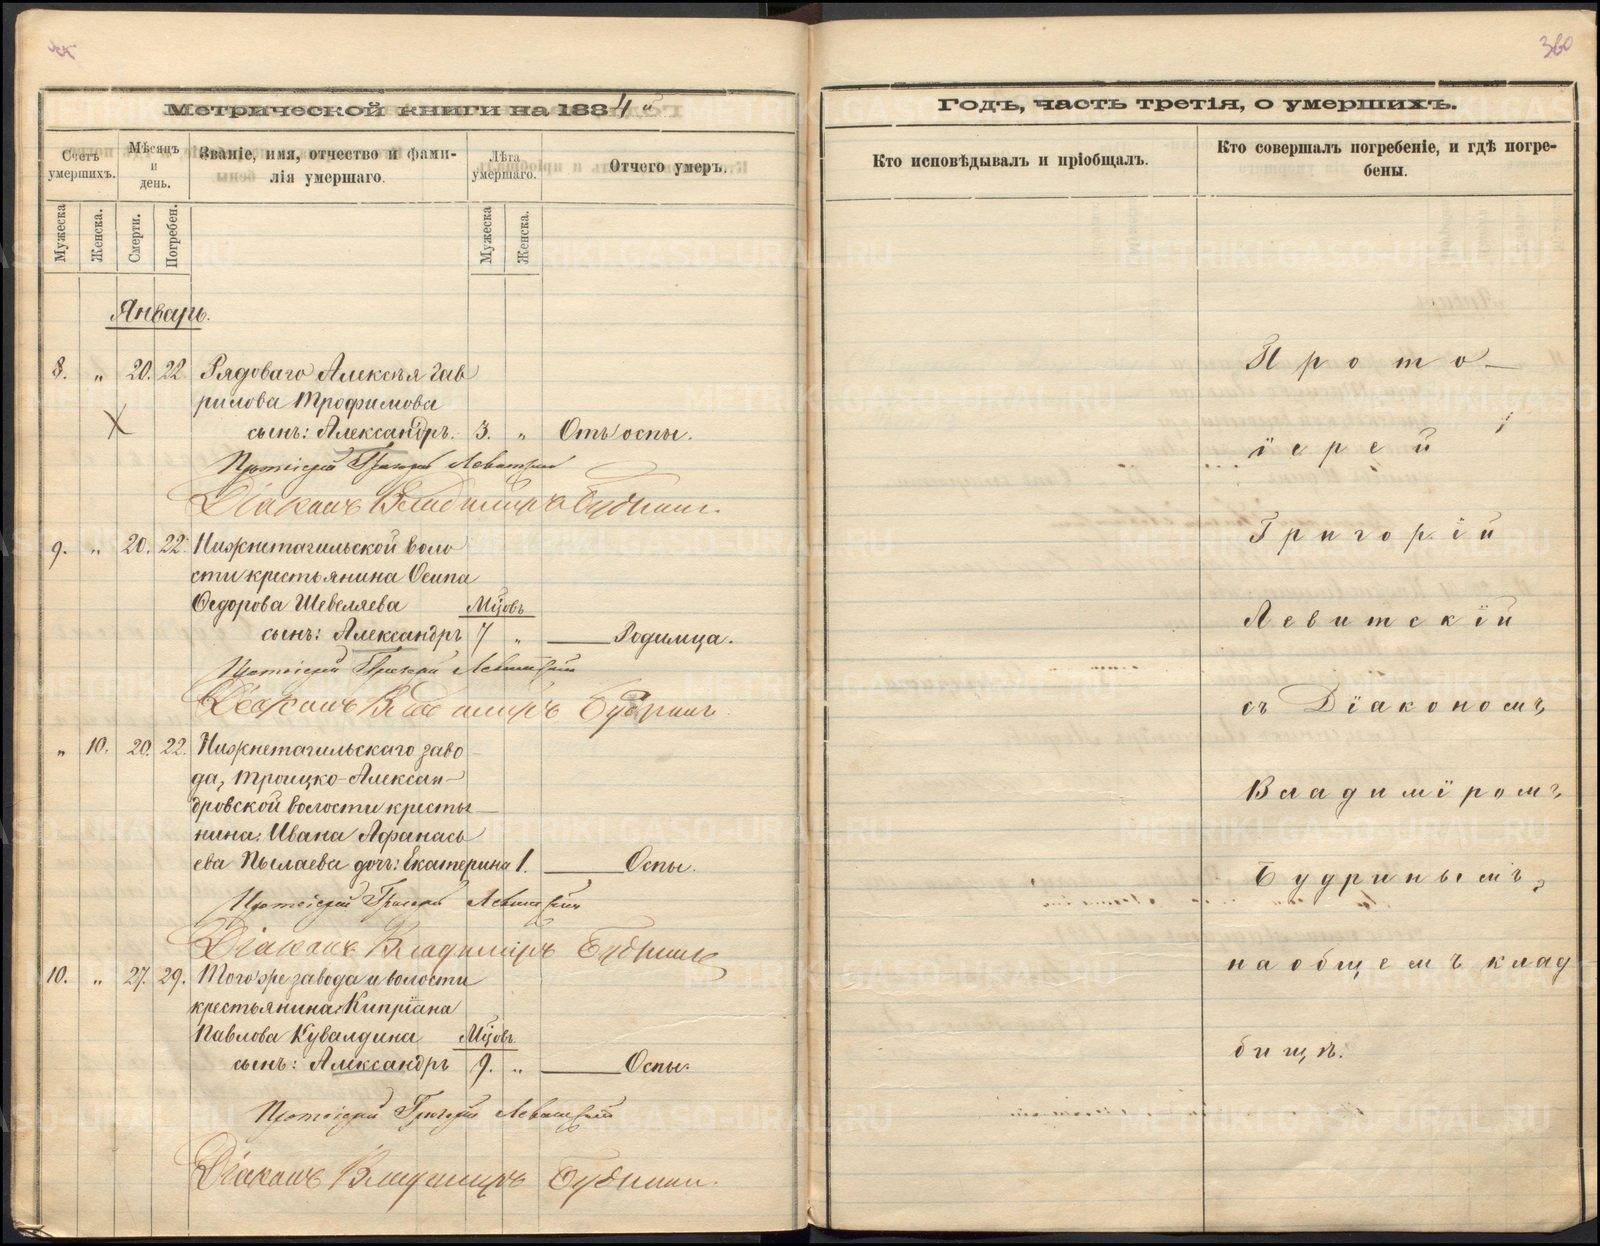 360
Метрической книги на 1884 й
Годъ, часть третія, о умершихъ.
Счетъ умершихъ.
Мѣсяцъ и день.
Званіе, имя, отчество и фами-
лія умершаго.
Лѣта умершаго.
Отчего умеръ.
Кто исповѣдывалъ и пріобщалъ.
Кто совершалъ погребеніе, и гдѣ погре-
бены.
Мужеска
Женска.
Смерти.
Погребен.
Мужеска
Женска.
Январь.
8. „ 20. 22. Рядоваго Алексѣя Гав
рилова Трофимова
сынъ: Александръ. 3. „ Отъ оспы.
Протоіерей Григорій Левитскій
Діаконъ Владиміръ Будринъ.
9. „ 20. 22. Нижнетагильской воло
сти крестьянина Осипа
Ѳедорова Шевеляева Мцовъ
сынъ: Александръ 7 „ — Родимца.
Протоіерей Григорій Левитскій
Діаконъ Владиміръ Будринъ
„ 10. 20. 22. Нижнетагильскаго заво-
да, Троицко-Алексан-
дровской волости кресть-
нина: Ивана Аѳанась
ева Пылаева дочь: Екатерина 1. — Оспы.
Протоіерей Григорій Левитскій
Діаконъ Владиміръ Будринъ
10. „ 27. 29. Тогоже завода и волости
крестьянина: Кипріана
Павлова Кувалдина Мцовъ
сынъ: Александръ 9. „ — Оспы.
Протоіерей Григорій Левитскій
Діаконъ Владиміръ Будринъ.
Прото-
іерей
Григорій
Левитскій
съ Діакономъ
Владиміромъ
Будринымъ,
на общемъ клад
бищѣ.